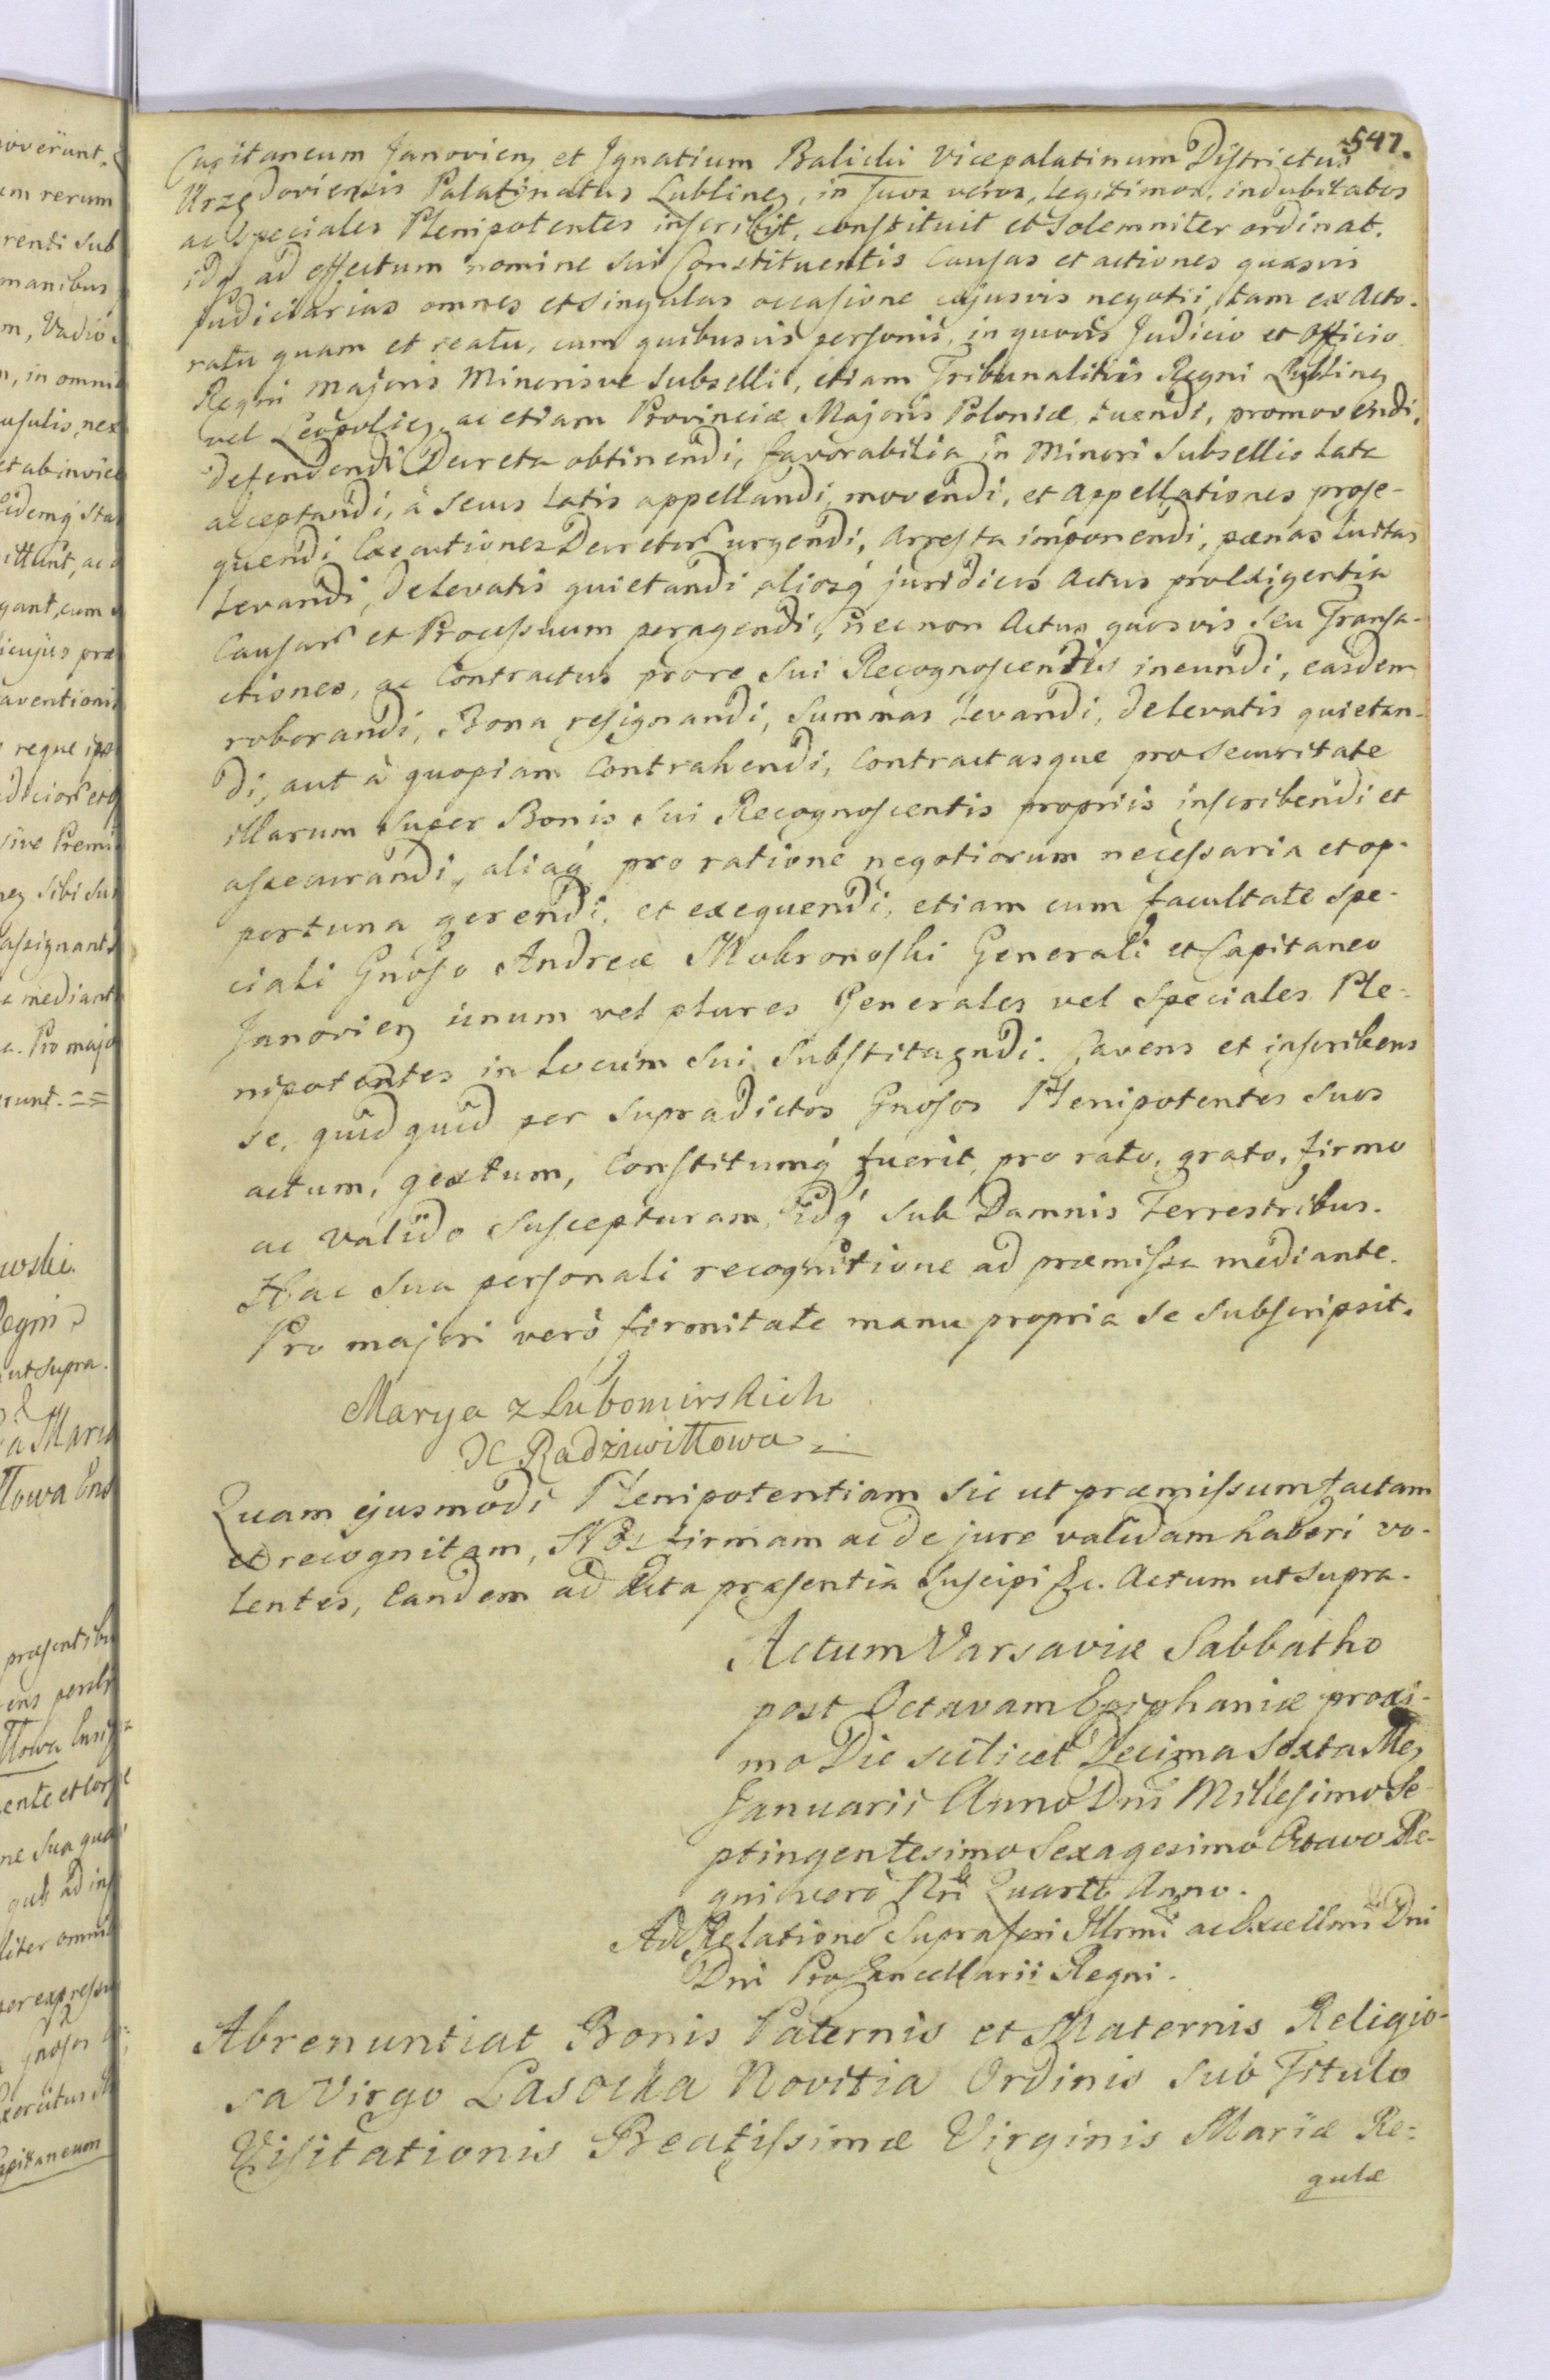 547.
Capitaneum Janovien, et Ignatium Balicki Vicepalatinum Districtus
Urzędoviensis Palatinatus Lublinen, in suos veros, legitimos, indubitatos
ac speciales Plenipotentes inscribit, constituit et solemniter ordinat.
idq ad effectum nomine sui Constituentis Causas et actiones quasvis
judiciarias omnes et singulas occasione cujusvis negotii, tam ex Acto-
ratu quam et reatu, cum quibusvis personis, in quovis Judicio et Officio
Regni Majoris Minorisve Subsellii, etiam Tribunalitiis Regni Lublinen
vel Leopolien, ac etiam Provinciæ Majoris Poloniæ tuendi, promovendi,
defendendi Decreta obtinendi, favorabilia in Minori Subsellio lata
acceptandi, à secus latis appellandi, movendi, et Appellationes prose-
quendi Executiones Decretor urgendi, Arresta imponendi, pænas luitas
levandi, de levatis quietandi aliosq juridicos Actus pro exigentia
Causar et Processuum peragendi, necnon Actus quosvis seu Transa-
ctiones, ac Contractus pro re sui Recognoscentis ineundi, easdem
roborandi, Bona resignandi, Summas levandi, de levatis quietan-
di, aut à quopiam Contrahendi, Contractasque pro securitate
illarum super Bonis sui Recognoscentis propriis inscribendi et
assecurandi, aliaq pro ratione negotiorum necessaria et op-
portuna gerendi, et exequendi, etiam cum facultate spe-
ciali Gnoso Andreæ Mokronoski Generali et Capitaneo
Janovien unum vel plures Generales vel Speciales Ple-
nipotentes in Locum sui substituendi. Cavens et inscribens
se, quidquid per supradictos Gnosos Plenipotentes suos
actum, gestum, Constitumq fuerit, pro rato, grato, firmo
ac valido suscepturam, idq sub Damnis Terrestribus.
Hac sua personali recognitione ad præmissa mediante.
Pro majori verò firmitate manu propria se subscripsit.
Marya z Lubomirskich
X Radziwiłłowa
Quam ejusmodi Plenipotentiam sic ut præmissum factam
et recognitam, Nos firmam ac de jure validam haberi vo-
lentes, Eandem ad Acta præsentia suscipi &c. Actum ut supra.
Actum Varsaviæ Sabbatho
post Octavam Epiphaniæ proxi-
mo Die scilicet Decima Sexta Men
Januarii Anno Dni Millesimo Se-
ptingentesimo Sexagesimo Octavo Re-
gni verò Nri Quarto Anno.
Ad Relatione Supraferi Illrmi ac Excellmi Dni
Dni ProCancellarii Regni.
Abrenuntiat Bonis Paternis et Maternis Religio-
sa Virgo Lasocka Novitia Ordinis sub Titulo
Visitationis Beatissimæ Virginis Mariæ Re-
gulæ